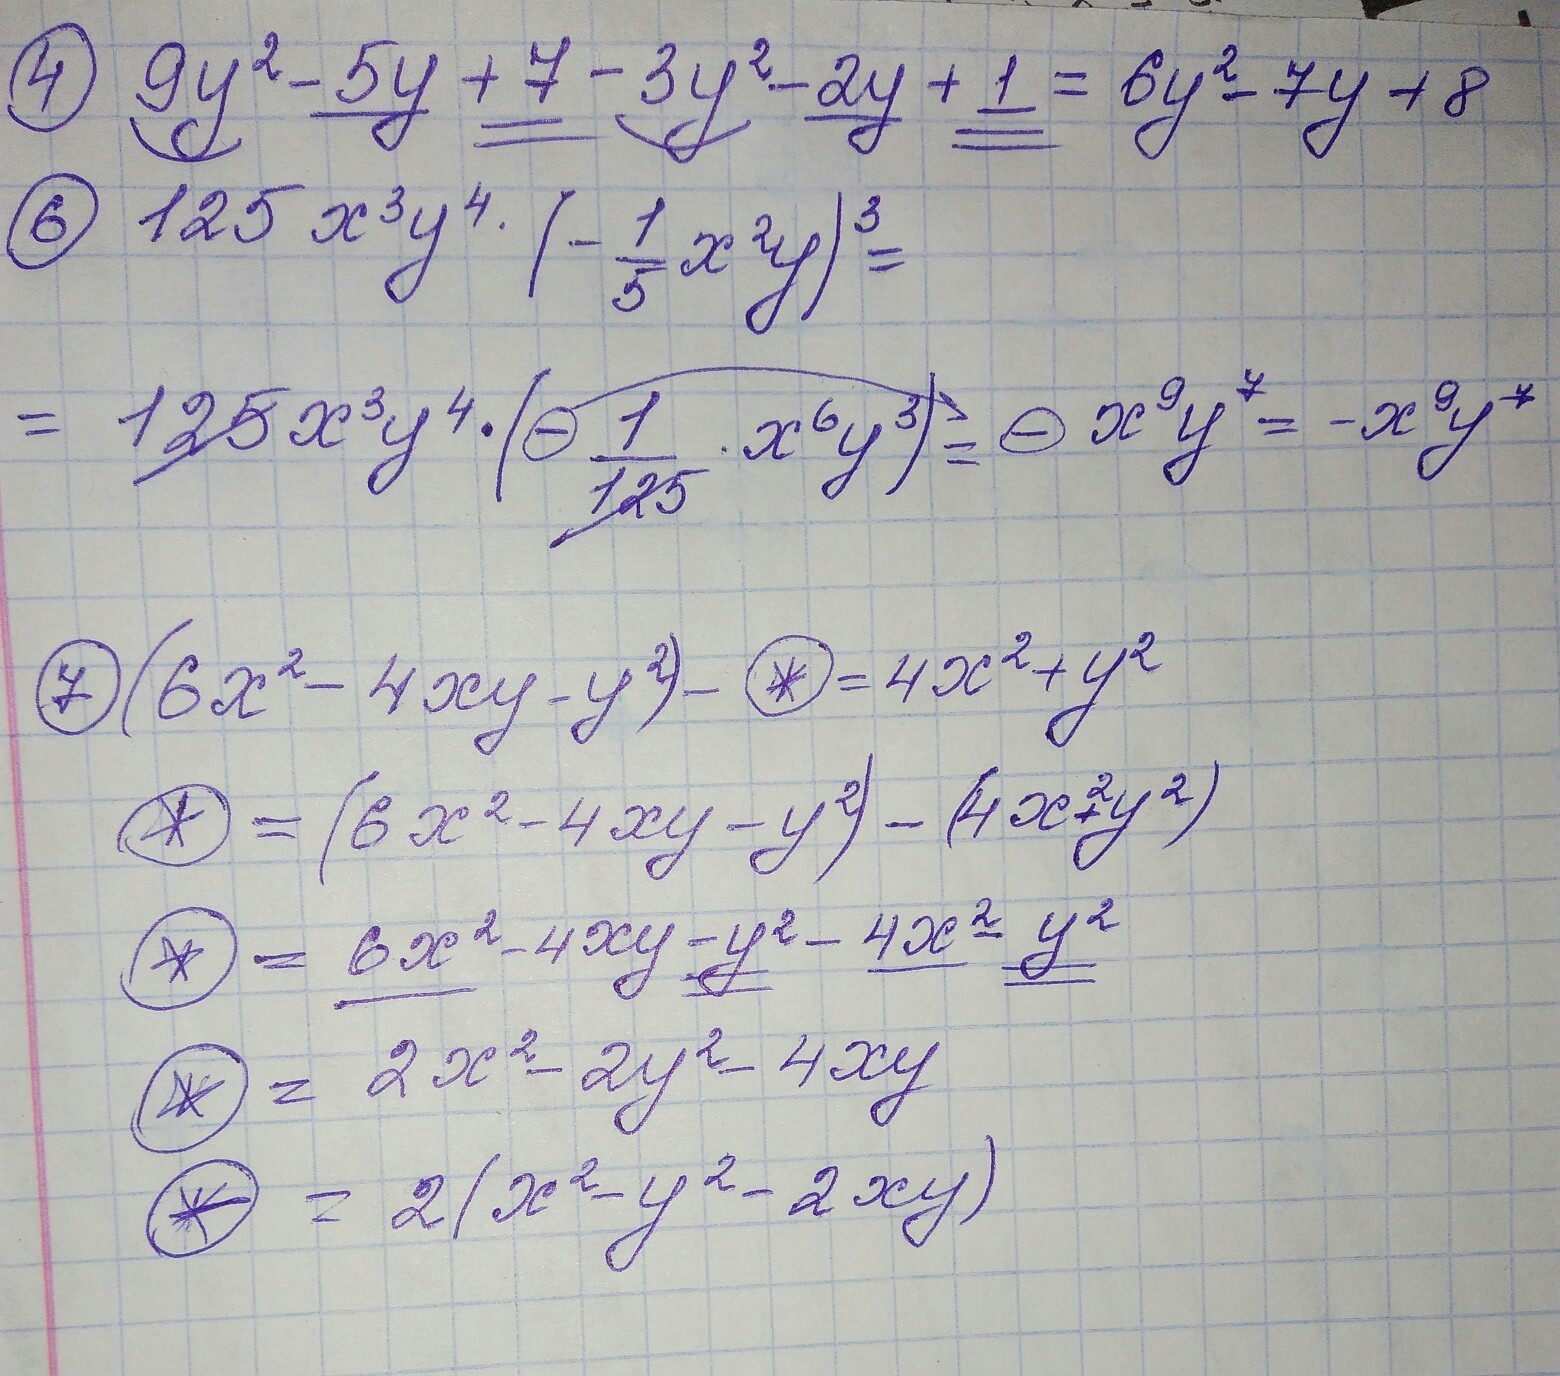 ④ 9y² - 5y + 7 - 3y² - 2y + 1 = 6y² - 7y + 8
⑥ 125 x³y⁴ · (- 1/5 x²y)³ =
= 125x³y⁴ · (- 1/125 · x⁶y³) = - x⁹y⁷ = - x⁹y⁷
⑦ (6x² - 4xy - y²) - * = 4x² + y²
* = (6x² - 4xy - y²) - (4x² + y²)
* = 6x² - 4xy - y² - 4x² - y²
* = 2x² - 2y² - 4xy
* = 2(x² - y² - 2xy)